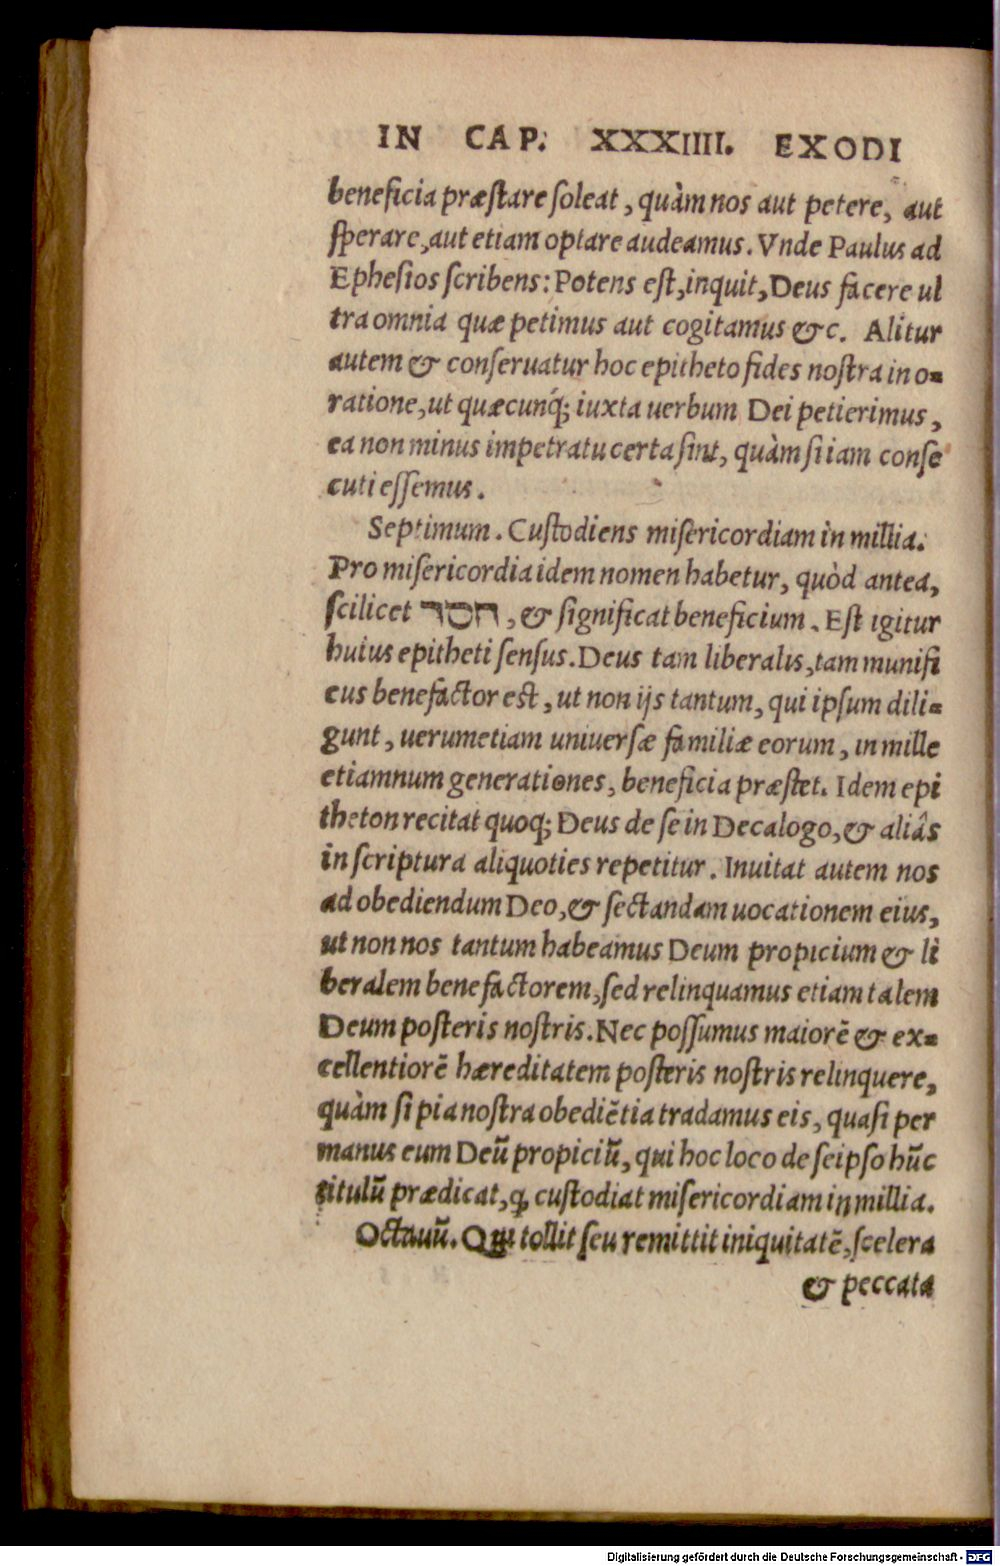 IN CAP. XXXIIII. EXODI
beneficia præſtare ſoleat, quàm nos aut petere, aut
ſperare, aut etiam optare audeamus. Vnde Paulus ad
Epheſios ſcribens: Potens eſt, inquit, Deus facere ul
tra omnia quæ petimus aut cogitamus &c. Alitur
autem & conſeruatur hoc epitheto fides noſtra in o-
ratione, ut quæcunq́; iuxta uerbum Dei petierimus,
ea non minus impetratu certa ſint, quàm ſi iam conſe
cuti eſſemus.
Septimum. Cuſtodiens miſericordiam in millia.
Pro miſericordia idem nomen habetur, quòd antea,
ſcilicet חסד, & ſignificat beneficium. Eſt igitur
huius epitheti ſenſus. Deus tam liberalis, tam munifi
cus benefactor eſt, ut non ijs tantum, qui ipſum dili-
gunt, uerumetiam uniuerſæ familiæ eorum, in mille
etiamnum generationes, beneficia præſtet. Idem epi
theton recitat quoq; Deus de ſe in Decalogo, & aliâs
in ſcriptura aliquoties repetitur. Inuitat autem nos
ad obediendum Deo, & ſectandam uocationem eius,
ut non nos tantum habeamus Deum propicium & li
beralem benefactorem, ſed relinquamus etiam talem
Deum poſteris noſtris. Nec poſſumus maiorē & ex-
cellentiorē hæreditatem poſteris noſtris relinquere,
quàm ſi pia noſtra obediētia tradamus eis, quaſi per
manus eum Deū propiciū, qui hoc loco de ſeipſo hūc
titulū prædicat, ꝙ cuſtodiat miſericordiam in millia.
Octauū. Qui tollit ſeu remittit iniquitatē, ſcelera
& peccata
Digitalisierung gefördert durch die Deutsche Forschungsgemeinschaft - DFG